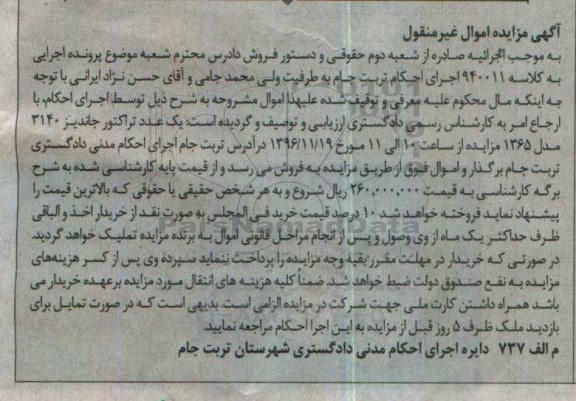 آگهی مزایده اموال غیرمنقول
به موجب اجرائیه صادره از شعبه دوم حقوقی و دستور فروش دادرس محترم شعبه موضوع پرونده اجرایی
به کلاسه ۹۴۰۰۱۱ اجرای احکام تربت جام به طرفیت ولی محمد جامی و آقای حسن نژاد ایرانی با توجه
به اینکه مال محکوم علیه معرفی و توقیف شده علیهذا اموال مشروحه به شرح ذیل توسط اجرای احکام، با
ارجاع امر به کارشناس رسمی دادگستری ارزیابی و توصیف و گردیده است: یک عدد تراکتور جاندیز ۳۱۴۰
مدل ۱۳۶۵ مزایده از ساعت ۱۰ الی ۱۱ مورخ ۱۳۹۶/۱۱/۱۹ در آدرس تربت جام اجرای احکام مدنی دادگستری
تربت جام برگذار و اموال فوق از طریق مزایده به فروش می رسد و از قیمت پایه کارشناسی شده به شرح
برگه کارشناسی به قیمت ۲۶۰,۰۰۰,۰۰۰ ریال شروع و به هر شخص حقیقی یا حقوقی که بالاترین قیمت را
پیشنهاد نماید فروخته خواهد شد ۱۰ درصد قیمت خرید فی المجلس به صورت نقد از خریدار اخذ و الباقی
ظرف حداکثر یک ماه از وی وصول و پس از انجام مراحل قانونی اموال به برنده مزایده تملیک خواهد گردید.
در صورتی که خریدار در مهلت مقرر بقیه وجه مزایده را پرداخت ننماید سپرده وی پس از کسر هزینه‌های
مزایده به نفع صندوق دولت ضبط خواهد شد. ضمناً کلیه هزینه های انتقال مورد مزایده برعهده خریدار می
باشد همراه داشتن کارت ملی جهت شرکت در مزایده الزامی است. بدیهی است که در صورت تمایل برای
بازدید ملک ظرف ۵ روز قبل از مزایده به این اجرا احکام مراجعه نمایید.
م الف ۷۳۷ دایره اجرای احکام مدنی دادگستری شهرستان تربت جام